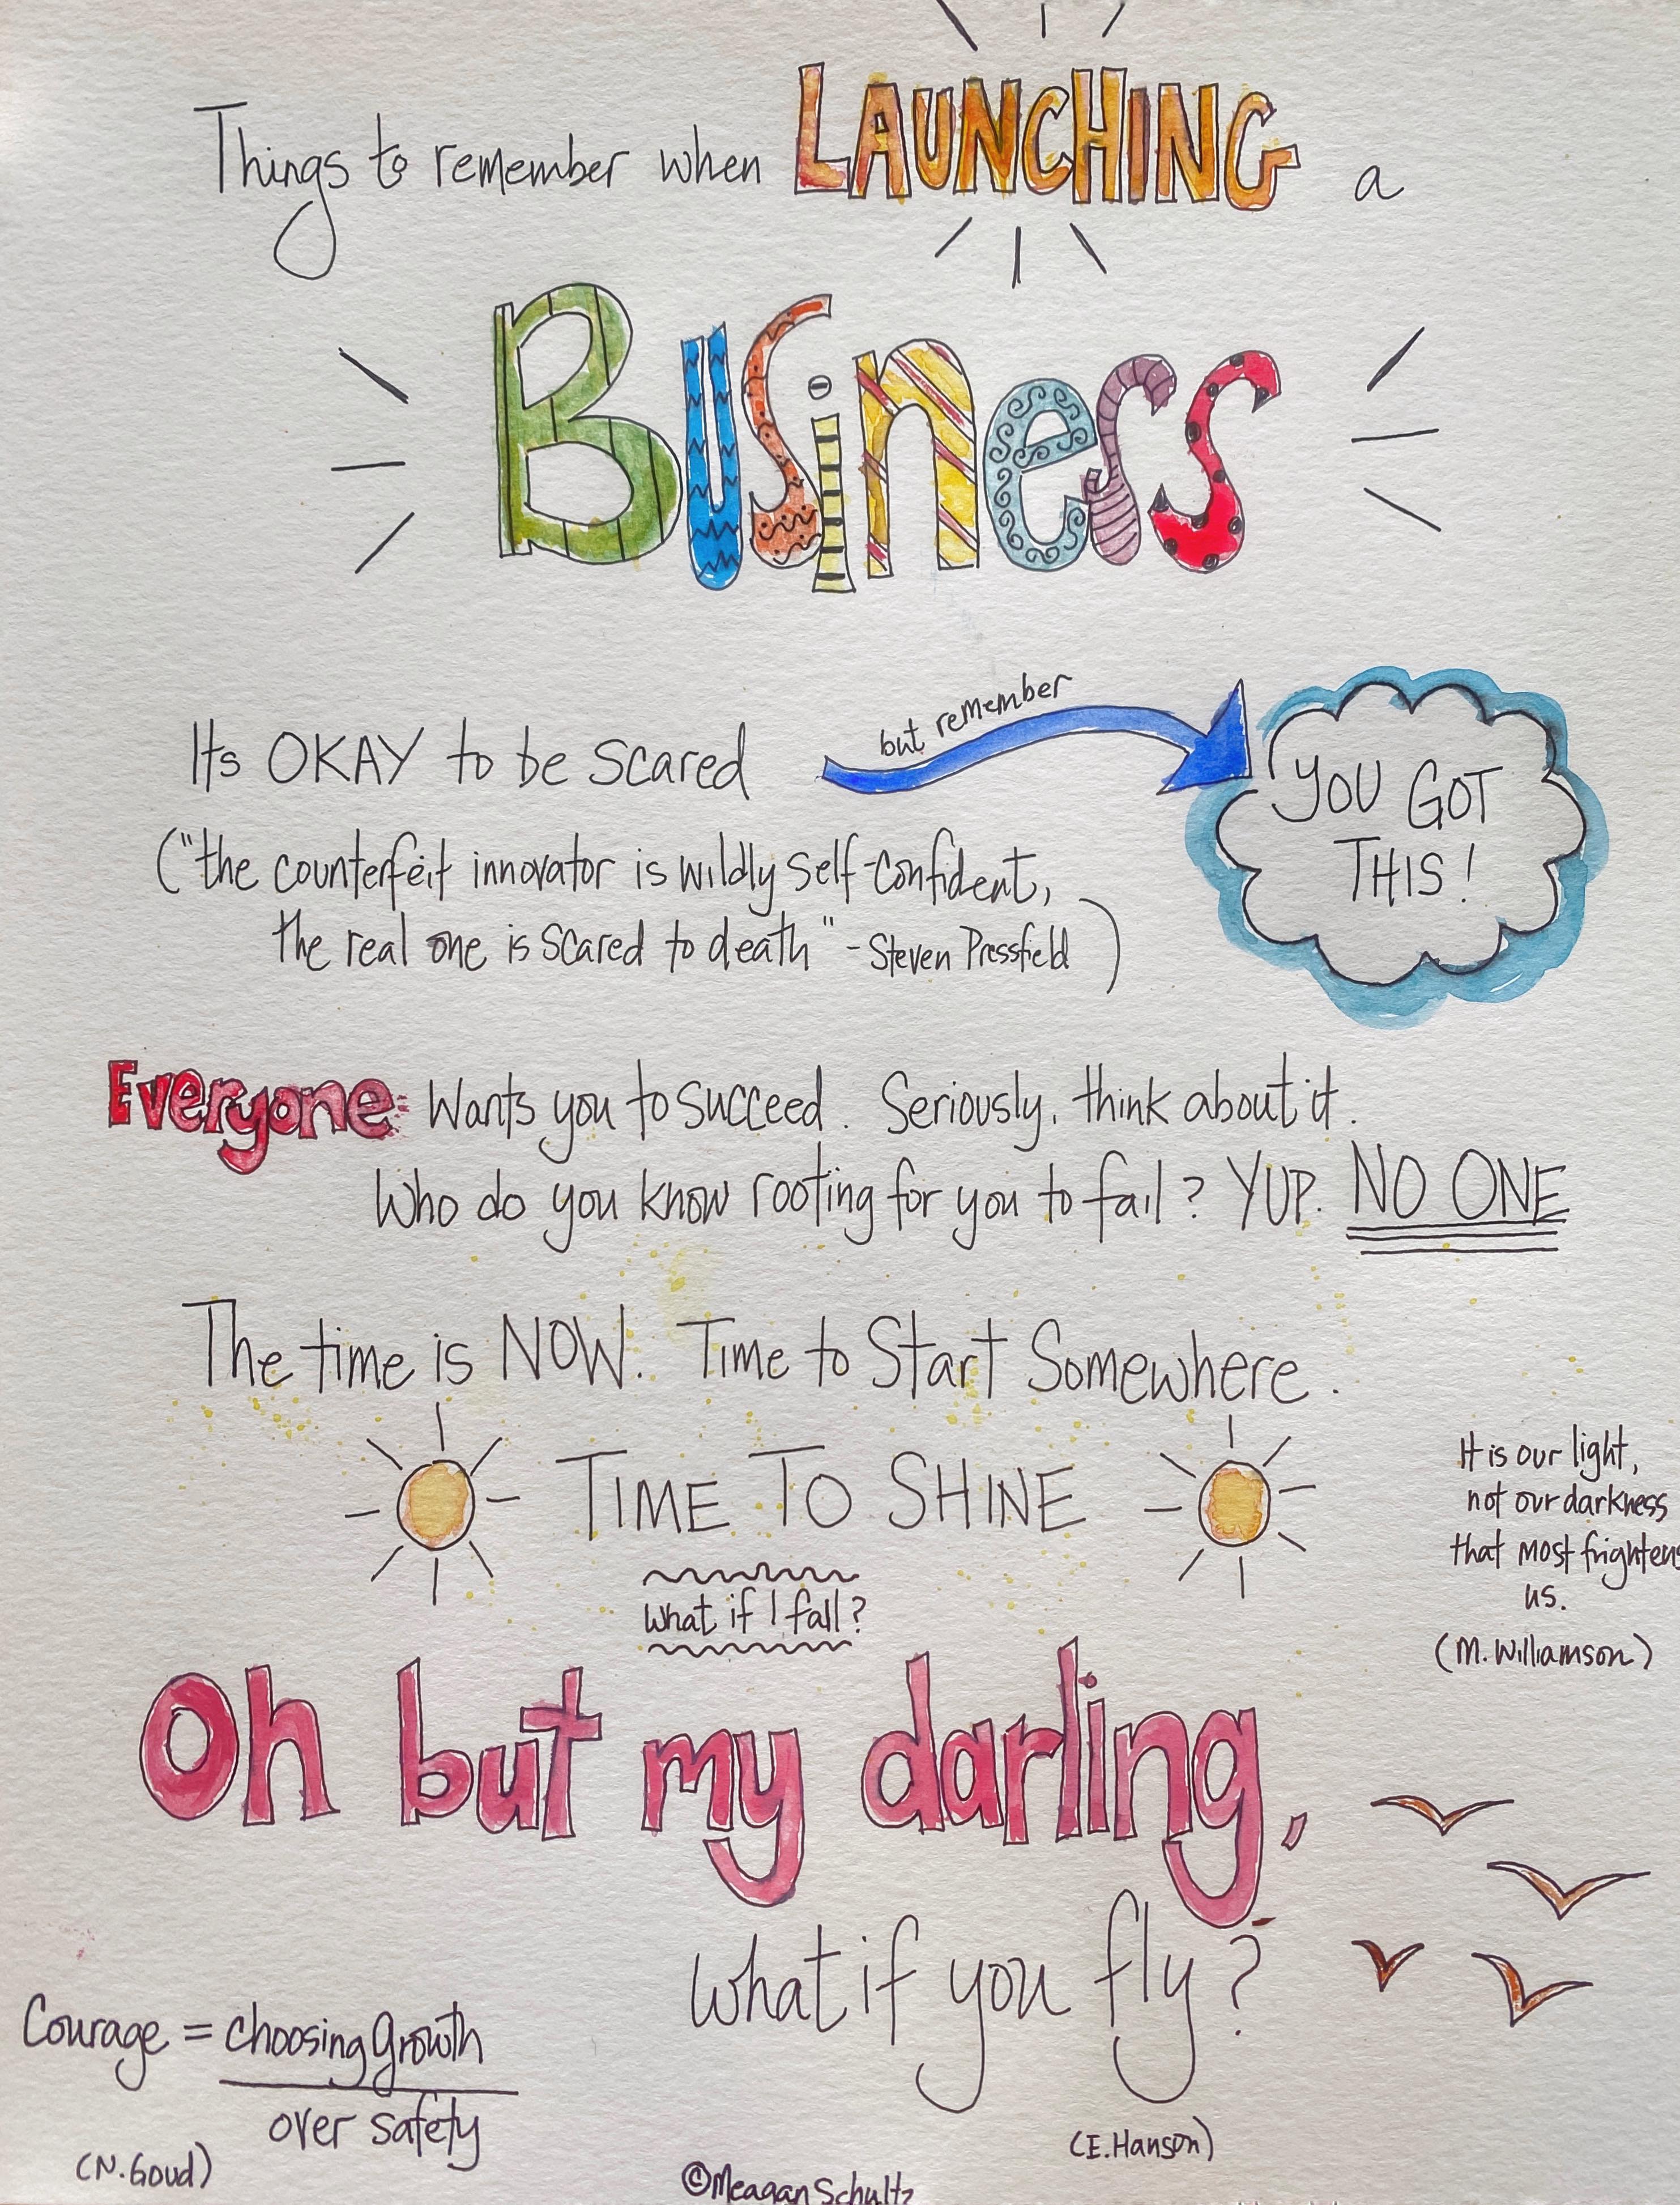 Things to remember when LAUNCHING a
Business
Its OKAY to be scared
but remember
YOU GOT
THIS!
("the counterfeit innovator is wildly self-confident,
the real one is scared to death" - Steven Pressfield)
Everyone: Wants you to succeed. Seriously, think about it.
Who do you know rooting for you to fail? YUP. NO ONE
The time is NOW. Time to Start Somewhere.
TIME TO SHINE
It is our light,
not our darkness
that most frightens
us.
(M. Williamson)
What if I fall?
Oh but my darling,
what if you fly?
(E. Hanson)
Courage = choosing growth
over safety
(N. Goud)
©Meagan Schultz